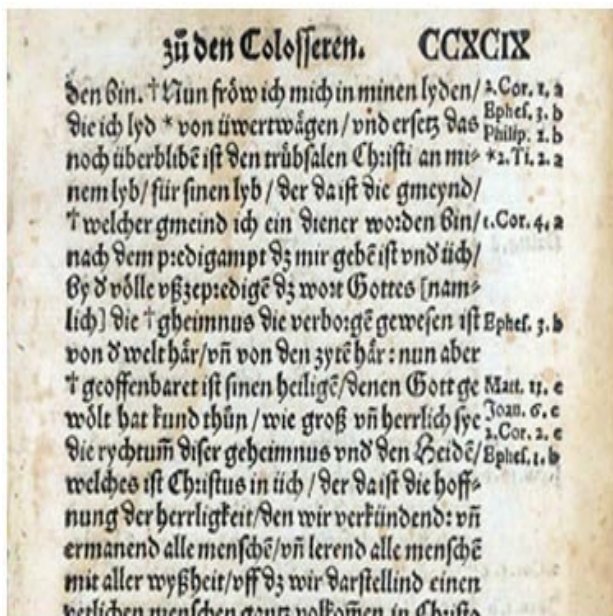 zů den Colosseren. CCXCIX
den bin. †Nun fröw ich mich in minen lyden/ 2.Cor. 1, a
die ich lyd * von üwertwägen/ vnd ersetz das Ephes. 3. b
Philip. 2. b
noch überblibē ist den trůbsalen Christi an mi⸗ *2. Ti. 2. a
nem lyb/ für sinen lyb/ der da ist die gmeynd/
† welcher gmeind ich ein diener worden bin/ 1.Cor. 4, a
nach dem predigampt dz mir gebē ist vnd üch/
by d völle vßzepredigē dz wort Gottes [nam⸗
lich] die †gheimnus die verborgē gewesen ist Ephes. 3. b
von d welt här/vñ von den zytē här: nun aber
† geoffenbaret ist sinen heiligē/denen Gott ge Matt. 13. c
wölt hat kund thůn/ wie groß vñ herrlich sye Joan. 6. e
2.Cor. 2. c
die rychtum̄ diser geheimnus vnd den Heidē/ Ephes. 1. b
welches ist Christus in üch/ der da ist die hoff⸗
nung der herrligkeit/den wir verkündend: vñ
ermanend alle menschē/vñ lerend alle menschē
mit aller wyßheit/vff dz wir darstellind einen
yetlichen menschen gantz volkom̄en in Christo